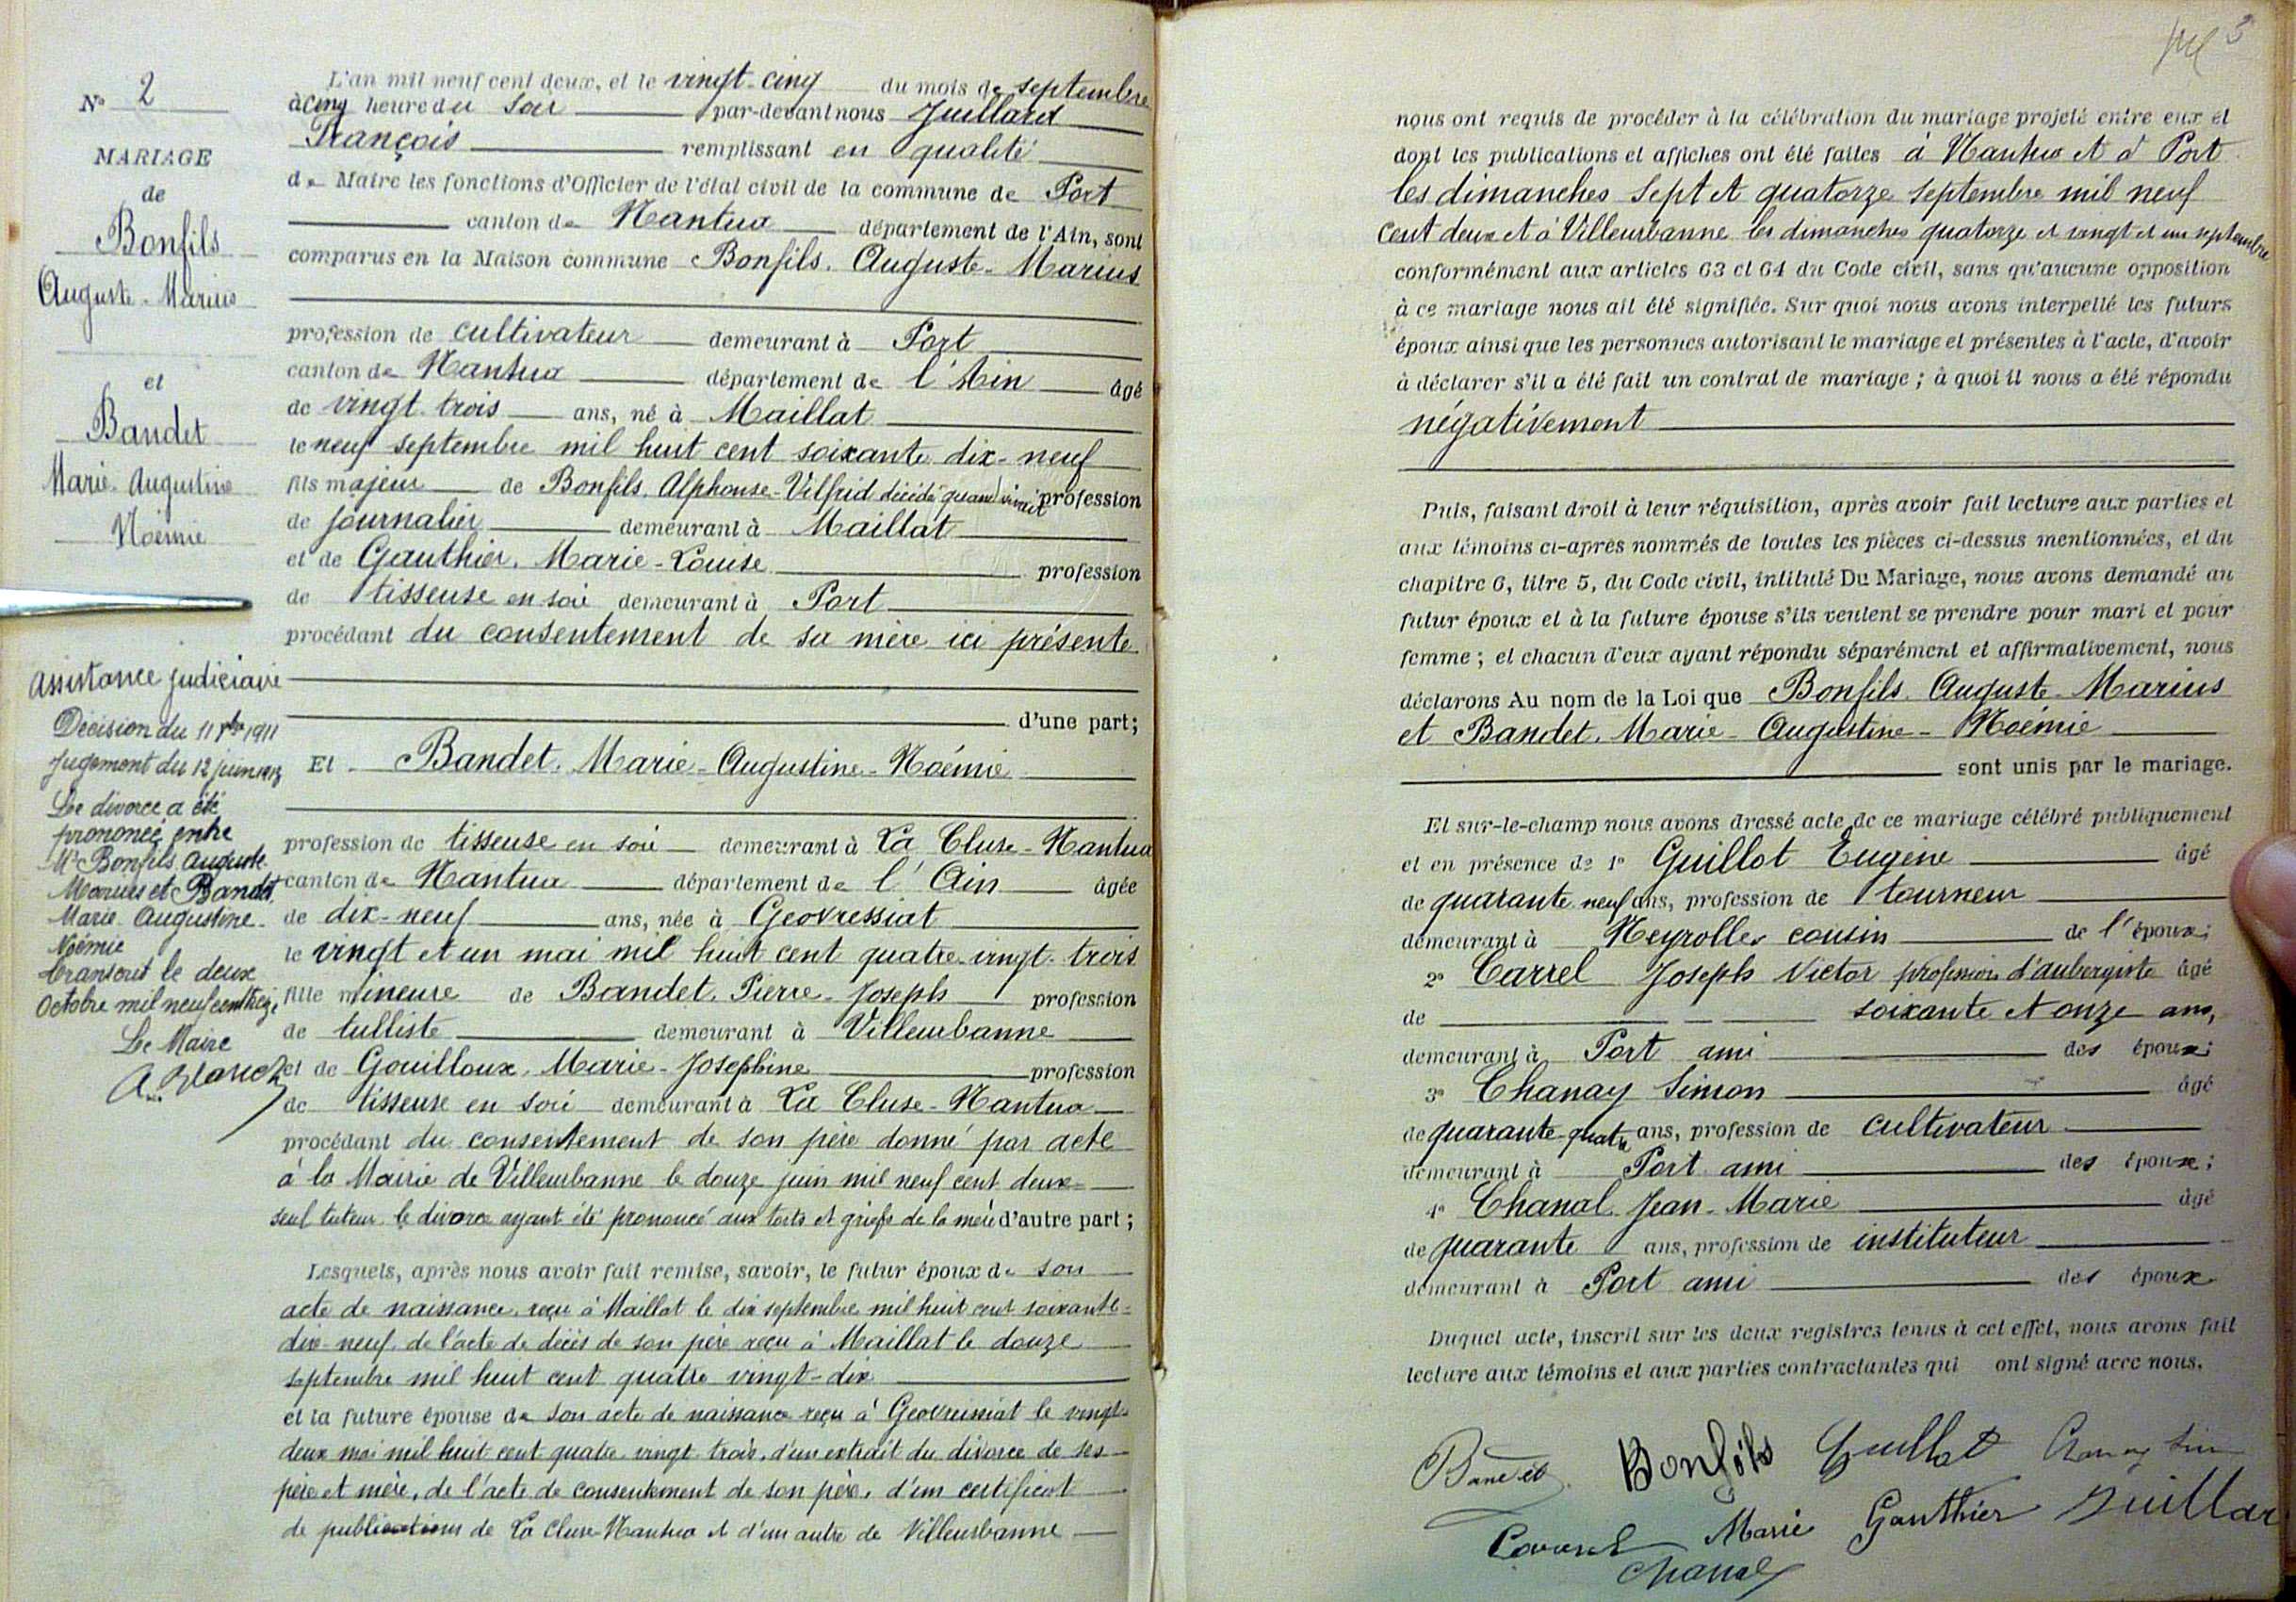 N° 2
MARIAGE
de
Bonfils
Auguste-Marius
et
Bandet
Marie-Augustine
Noémie
Assistance judiciaire
Décision du 11 1911
Jugement du 12 juin 1913
Le divorce a été
prononcé entre
Mr Bonfils Auguste
Marius et Bandet
Marie-Augustine-
Noémie
transcrit le deux
Octobre mil neuf cent treize
Le Maire
L'an mil neuf cent deux, et le vingt-cinq du mois de septembre
à cinq heure du soir par-devant nous Juillard
François remplissant en qualité
de Maire les fonctions d'Officier de l'état civil de la commune de Port
canton de Nantua département de l'Ain, sont
comparus en la Maison commune Bonfils. Auguste-Marius
profession de cultivateur demeurant à Port
canton de Nantua département de l'Ain âgé
de vingt-trois ans, né à Maillat
le neuf septembre mil huit cent soixante dix-neuf
fils majeur de Bonfils. Alphonse-Vilfrid décédé quand vivait profession
de journalier demeurant à Maillat
et de Gauthier. Marie-Louise profession
de tisseuse en soie demeurant à Port
procédant du consentement de sa mère ici présente
d'une part;
Et Bandet. Marie-Augustine-Noémie
profession de tisseuse en soie demeurant à La Cluse-Nantua
canton de Nantua département de l'Ain âgée
de dix-neuf ans, née à Geovressiat
le vingt et un mai mil huit cent quatre-vingt-trois
fille mineure de Bandet. Pierre-Joseph profession
de tulliste demeurant à Villeurbanne
et de Gouilloux. Marie-Joséphine profession
de tisseuse en soie demeurant à La Cluse-Nantua
procédant du consentement de son père donné par acte
à la Mairie de Villeurbanne le douze juin mil neuf cent deux
seul tuteur le divorce ayant été prononcé aux torts et griefs de la mère d'autre part;
Lesquels, après nous avoir fait remise, savoir, le futur époux de son
acte de naissance reçu à Maillat le dix septembre mil huit cent soixante-
dix-neuf, de l'acte de décès de son père reçu à Maillat le douze
septembre mil huit cent quatre vingt-dix
et la future épouse de son acte de naissance reçu à Geovreissiat le vingt-
deux mai mil huit cent quatre-vingt-trois, d'un extrait du divorce de ses
père et mère, de l'acte de consentement de son père, d'un certificat
de publications de La Cluse-Nantua et d'un autre de Villeurbanne
3
nous ont requis de procéder à la célébration du mariage projeté entre eux et
dont les publications et affiches ont été faites à Nantua et à Port
les dimanches sept et quatorze septembre mil neuf
cent deux et à Villeurbanne les dimanches quatorze et vingt et un septembre
conformément aux articles 63 et 64 du Code civil, sans qu'aucune opposition
à ce mariage nous ait été signifiée. Sur quoi nous avons interpellé les futurs
époux ainsi que les personnes autorisant le mariage et présentes à l'acte, d'avoir
à déclarer s'il a été fait un contrat de mariage; à quoi il nous a été répondu
négativement
Puis, faisant droit à leur réquisition, après avoir fait lecture aux parties et
aux témoins ci-après nommés de toutes les pièces ci-dessus mentionnées, et du
chapitre 6, titre 5, du Code civil, intitulé Du Mariage, nous avons demandé au
futur époux et à la future épouse s'ils veulent se prendre pour mari et pour
femme; et chacun d'eux ayant répondu séparément et affirmativement, nous
déclarons Au nom de la Loi que Bonfils Auguste-Marius
et Bandet. Marie-Augustine-Noémie
sont unis par le mariage.
Et sur-le-champ nous avons dressé acte de ce mariage célébré publiquement
et en présence de 1° Guillot Eugène âgé
de quarante neuf ans, profession de tourneur
demeurant à Neyrolles cousin de l'époux;
2° Carrel Joseph Victor profession d'aubergiste âgé
de soixante et onze ans,
demeurant à Port ami des époux;
3° Chanay Simon âgé
de quarante-quatre ans, profession de cultivateur
demeurant à Port ami des époux;
4° Chanal Jean-Marie âgé
de quarante ans, profession de instituteur
demeurant à Port ami des époux
Duquel acte, inscrit sur les deux registres tenus à cet effet, nous avons fait
lecture aux témoins et aux parties contractantes qui ont signé avec nous.
Bandet Bonfils Guillot Chanay Simon
Carrel Marie Gauthier Juillard
Chanal